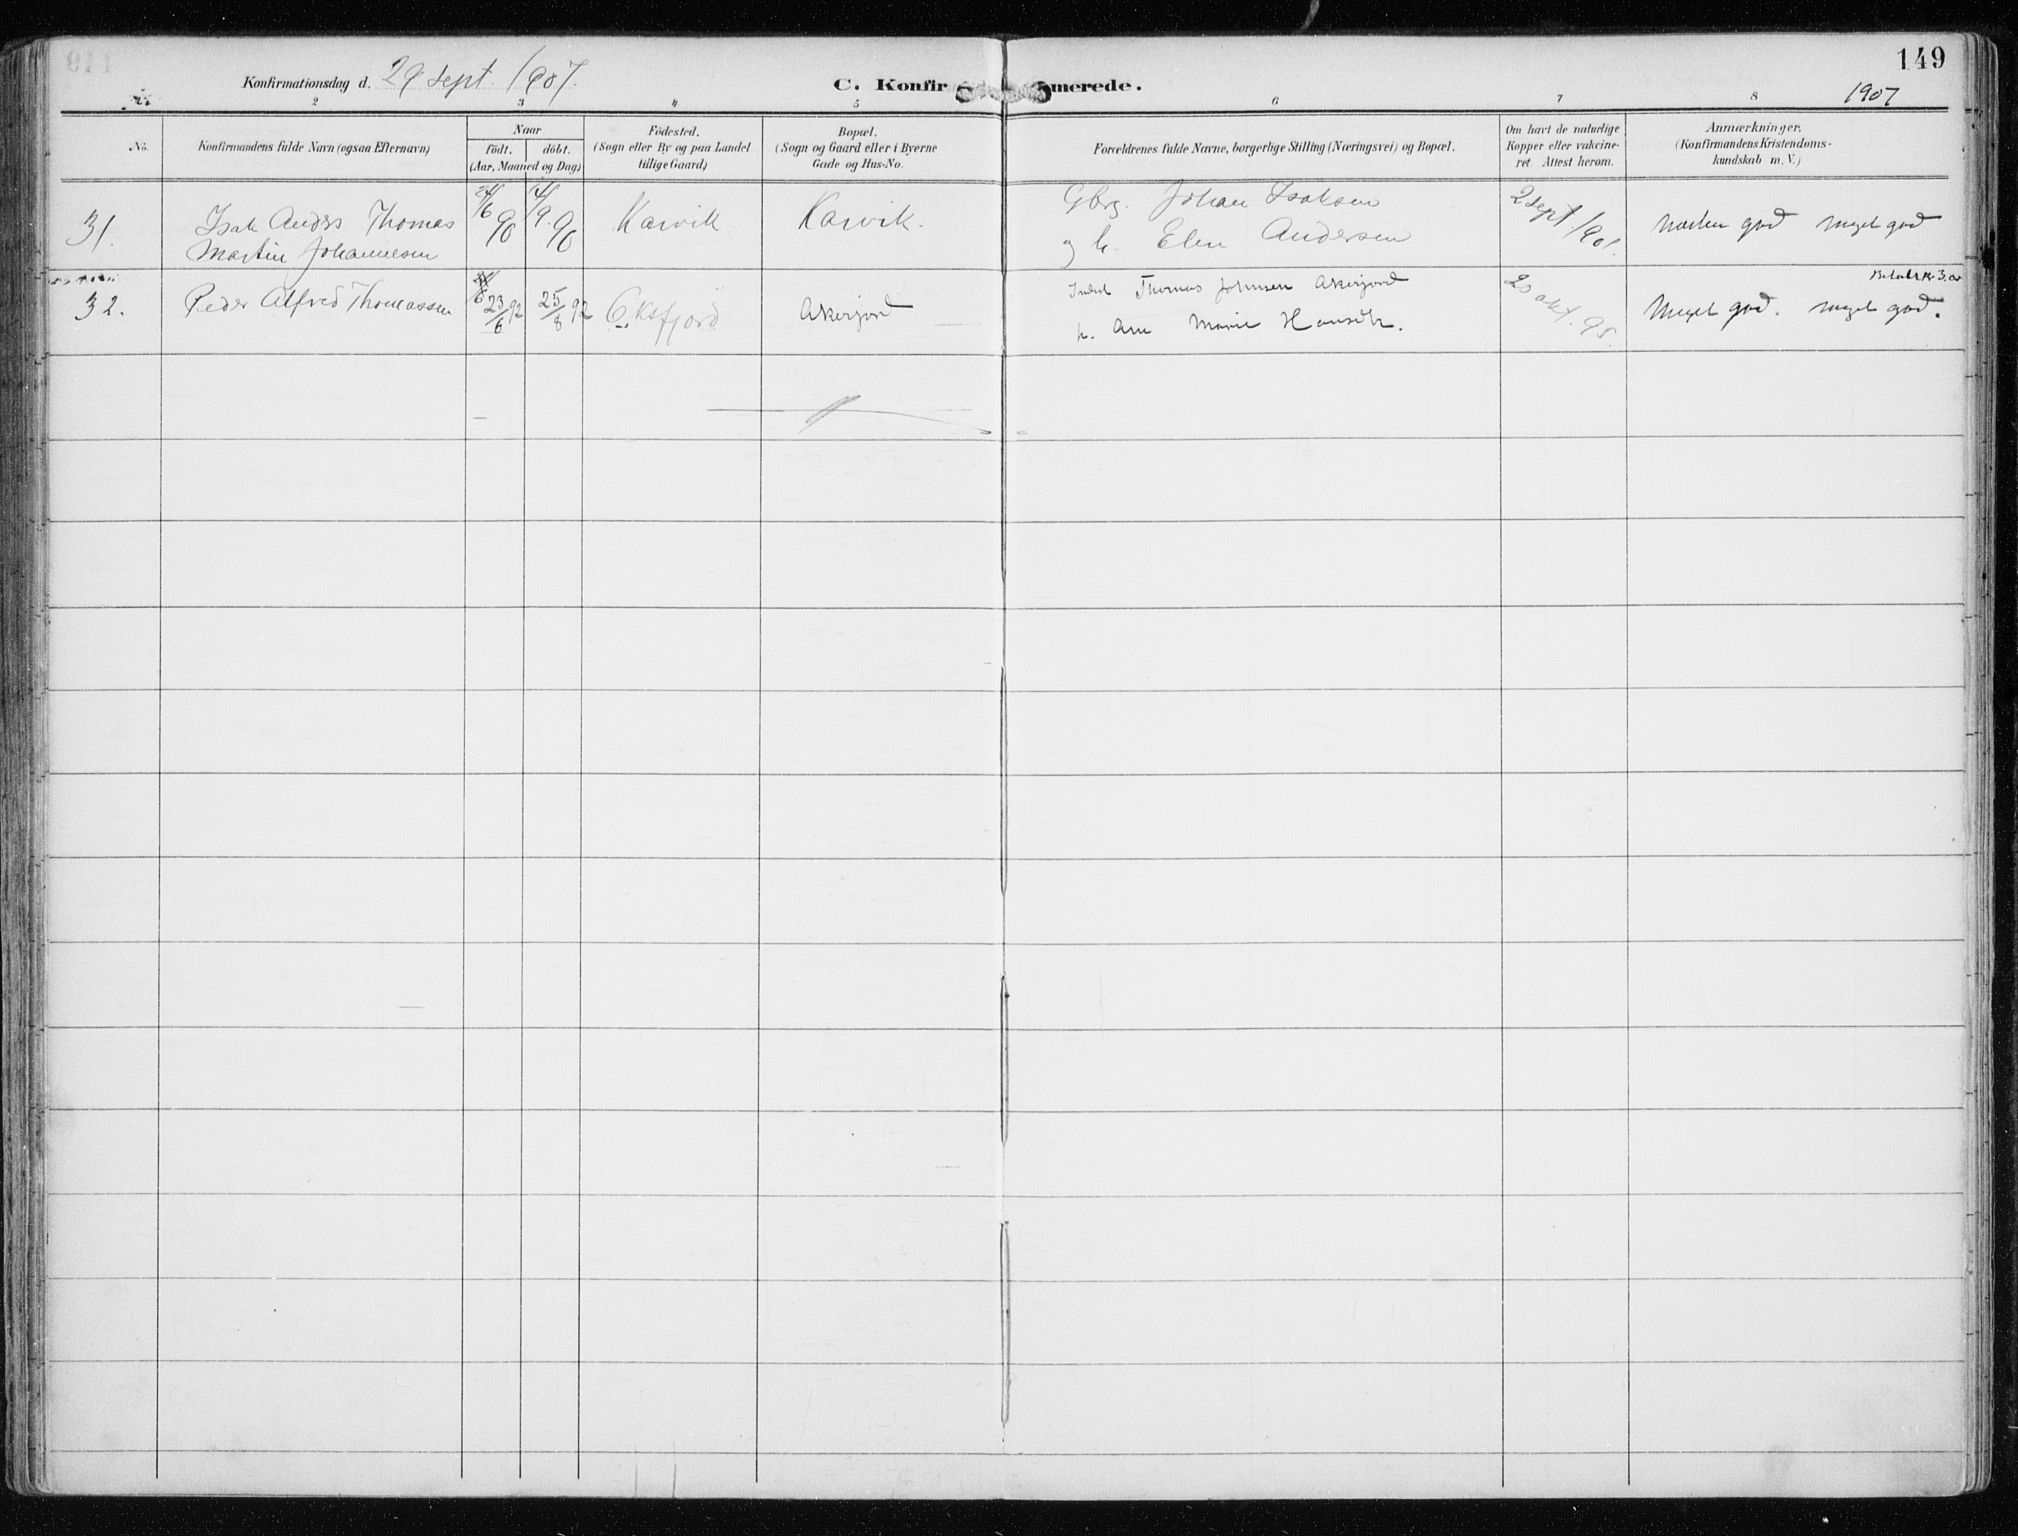 149
Konfirmationsdag d. 29 sept. 1907.
C. Konfir merede.
1907
2 3 4 5 6 7 8
No.
Konfirmandens fulde Navn (ogsaa Efternavn)
Naar
födt. döbt.
(Aar, Maaned og Dag)
Födested.
(Sogn eller By og paa Landet
tillige Gaard)
Bopæl.
(Sogn og Gaard eller i Byerne
Gade og Hus-No.
Forældrenes fulde Navne, borgerlige Stilling (Næringsvei) og Bopæl.
Om havt de naturlige
Kopper eller vakcine-
ret. Attest herom.
Anmærkninger.
(Konfirmandens Kristendoms-
kundskab m. V.)
31.
Isak Anders Thomas
Martin Johannesen
24/6 90
14/9. 90
Karvik
Karvik.
Gbrg. Johan Isaksen
og h. Elen Andersen
2 sept 1901.
Næsten god meget god
32.
Peder Alfred Thomassen
23/6 92
25/8 92
Oksfjord
Akerjord
Thomas Johnsen Akerjord
h. Ane Marie Hansdtr.
20 okt. 95.
Betalt kr 3.00
Meget god. meget god.